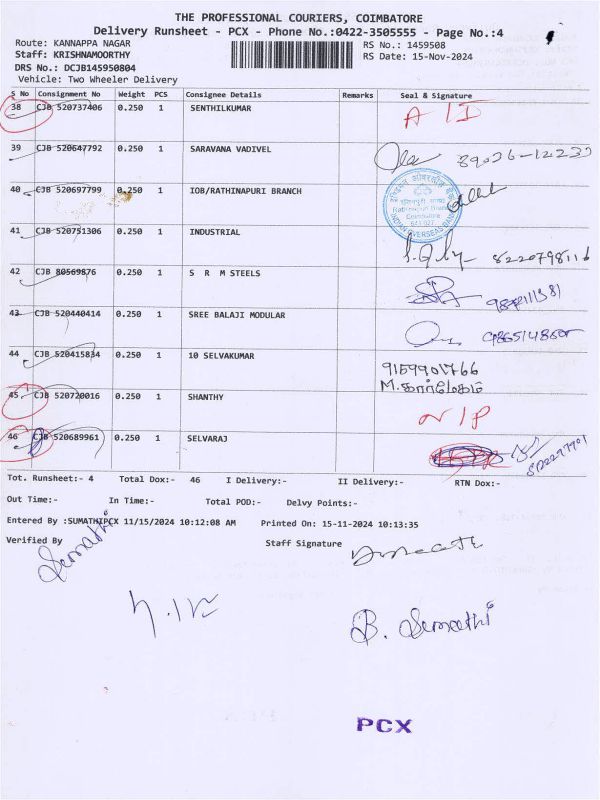 THE PROFESSIONAL COURIERS, COIMBATORE
Delivery Runsheet - PCX - Phone No.:0422-3505555 - Page No.:4
Route: KANNAPPA NAGAR RS No.: 1459508
Staff: KRISHNAMOORTHY RS Date: 15-Nov-2024
DRS No.: DCJB145950804
Vehicle: Two Wheeler Delivery
S No Consignment No Weight PCS Consignee Details Remarks Seal & Signature
38 CJB 520737406 0.250 1 SENTHILKUMAR A/I
39 CJB 520647792 0.250 1 SARAVANA VADIVEL
40 CJB 520697799 0.250 1 IOB/RATHINAPURI BRANCH
Rathinapuri Branch
Coimbatore
641 027
INDIAN OVERSEAS BANK
41 CJB 520751306 0.250 1 INDUSTRIAL 8220798116
42 CJB 80569876 0.250 1 S R M STEELS
43 CJB 520440414 0.250 1 SREE BALAJI MODULAR
44 CJB 520415834 0.250 1 10 SELVAKUMAR
M. கார்மேகம்
45 CJB 520720016 0.250 1 SHANTHY N/P
46 CJB 520689961 0.250 1 SELVARAJ
Tot. Runsheet:- 4 Total Dox:- 46 I Delivery:- II Delivery:- RTN Dox:-
Out Time:- In Time:- Total POD:- Delvy Points:-
Entered By :SUMATHIPCX 11/15/2024 10:12:08 AM Printed On: 15-11-2024 10:13:35
Verified By Sumathi Staff Signature
B. Sumathi
PCX